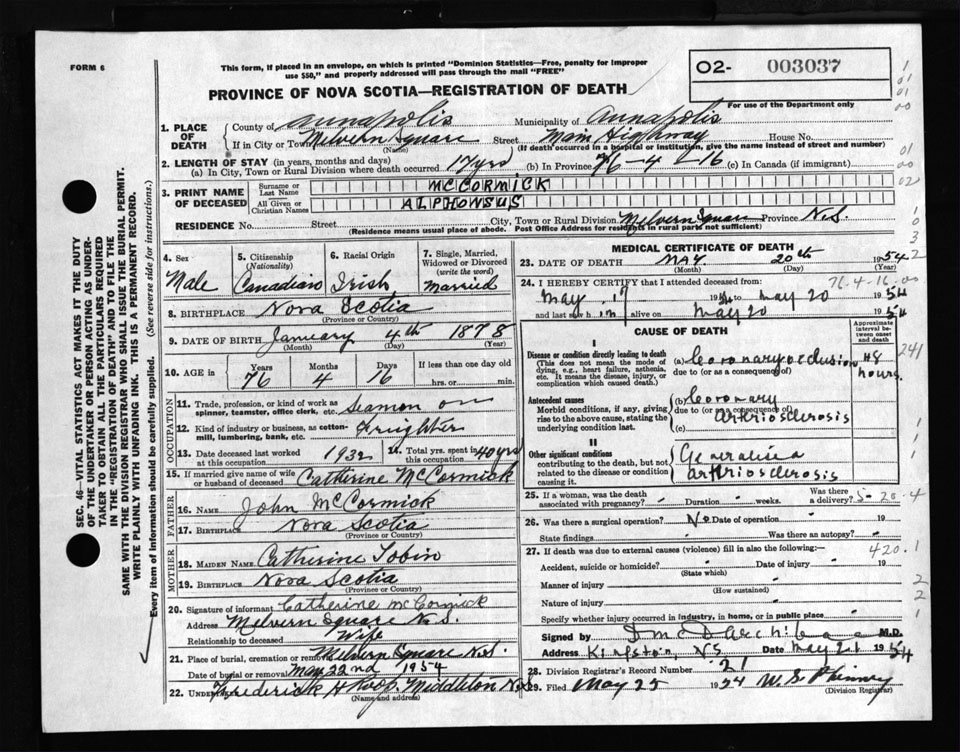 FORM 6
This form, if placed in an envelope, on which is printed "Dominion Statistics—Free, penalty for improper
use $50," and properly addressed will pass through the mail "FREE"
O2- 003037
For use of the Department only
PROVINCE OF NOVA SCOTIA—REGISTRATION OF DEATH
1. PLACE OF DEATH
County of Annapolis Municipality of Annapolis
If in City or Town Melvern Square Street Main Highway House No.
(Name) (If death occurred in a hospital or institution, give the name instead of street and number)
2. LENGTH OF STAY (in years, months and days)
(a) In City, Town or Rural Division where death occurred 17 yrs (b) In Province 76-4-16 (c) In Canada (if immigrant)
3. PRINT NAME OF DECEASED
Surname or Last Name MCCORMICK
All Given or Christian Names ALPHONSUS
RESIDENCE No. Street City, Town or Rural Division Melvern Square Province N.S.
(Residence means usual place of abode. Post Office Address for residents in rural parts not sufficient)
4. Sex Male
5. Citizenship (Nationality) Canadian
6. Racial Origin Irish
7. Single, Married, Widowed or Divorced (write the word) Married
8. BIRTHPLACE Nova Scotia
(Province or Country)
9. DATE OF BIRTH January 4th 1878
(Month) (Day) (Year)
10. AGE in Years 76 Months 4 Days 16 If less than one day old
hrs. or min.
OCCUPATION
11. Trade, profession, or kind of work as spinner, teamster, office clerk, etc. Seaman on
12. Kind of industry or business, as cotton-mill, lumbering, bank, etc. Freighter
13. Date deceased last worked at this occupation 1932
14. Total yrs. spent in this occupation 40 yrs
15. If married give name of wife or husband of deceased Catherine McCormick
FATHER
16. Name John McCormick
17. Birthplace Nova Scotia
(Province or Country)
MOTHER
18. MAIDEN NAME Catherine Tobin
19. BIRTHPLACE Nova Scotia
(Province or Country)
20. Signature of informant Catherine McCormick
Address Melvern Square N.S.
Relationship to deceased Wife
21. Place of burial, cremation or removal Melvern Square N.S.
Date of burial or removal May 22nd 1954
22. Undertaker Frederick H Middleton N.S.
(Name and address)
MEDICAL CERTIFICATE OF DEATH
23. DATE OF DEATH MAY 20th 1954
(Month) (Day) (Year)
24. I HEREBY CERTIFY that I attended deceased from: 76-4-16
May 17 1954 to May 20 1954
and last saw him alive on May 20 1954
CAUSE OF DEATH
Approximate interval between onset and death
I
Disease or condition directly leading to death
(This does not mean the mode of dying, e.g., heart failure, asthenia, etc. It means the disease, injury, or complication which caused death.)
(a) Coronary occlusion 48 hours.
due to (or as a consequence of)
241
Antecedent causes
Morbid conditions, if any, giving rise to the above cause, stating the underlying condition last.
(b) Coronary
due to (or as a consequence of)
Arteriosclerosis
(c)
II
Other significant conditions
contributing to the death, but not related to the disease or condition causing it.
Generalised
arteriosclerosis
25. If a woman, was the death associated with pregnancy? Duration weeks. Was there a delivery?
5-20-4
26. Was there a surgical operation? No Date of operation 19
State findings Was there an autopsy?
27. If death was due to external causes (violence) fill in also the following:—
420.1
Accident, suicide or homicide? Date of injury 19
(State which)
Manner of injury
(How sustained)
Nature of injury
Specify whether injury occurred in industry, in home, or in public place
Signed by M.D.
Address Kingston, N.S. Date May 21 1954
28. Division Registrar's Record Number 21
29. Filed May 25 1954 W. S. Phinney
(Division Registrar)
SEC. 46—VITAL STATISTICS ACT MAKES IT THE DUTY
OF THE UNDERTAKER OR PERSON ACTING AS UNDER-
TAKER TO OBTAIN ALL THE PARTICULARS REQUIRED
IN THE "REGISTRATION OF DEATH" AND TO FILE THE
SAME WITH THE DIVISION REGISTRAR WHO SHALL ISSUE THE BURIAL PERMIT.
WRITE PLAINLY WITH UNFADING INK. THIS IS A PERMANENT RECORD.
Every item of information should be carefully supplied. (See reverse side for instructions.)